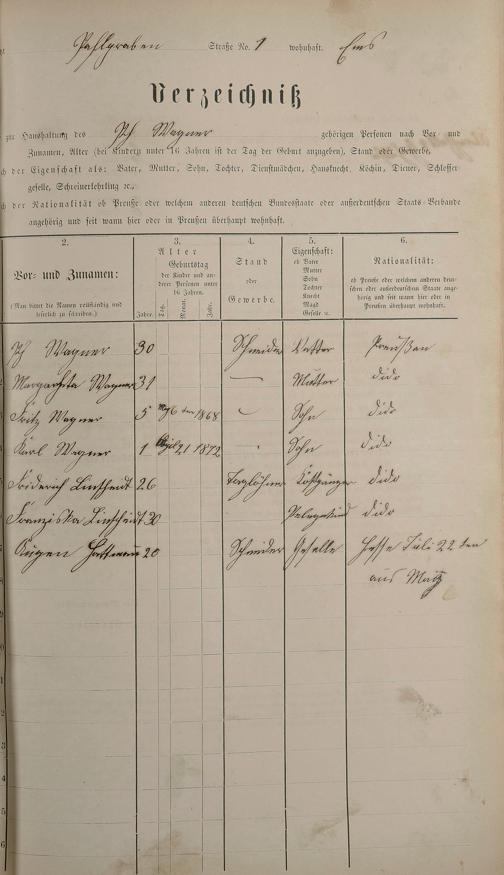 Pfahlgraben Straße No. 1 wohnhaft. Ems
Verzeichniß
zur Haushaltung des Ph Wagner gehörigen Personen nach Vor- und
Zunamen, Alter (bei Kindern unter 16 Jahren ist der Tag der Geburt anzugeben), Stand oder Gewerbe,
der Eigenschaft als: Vater, Mutter, Sohn, Tochter, Dienstmädchen, Hausknecht, Köchin, Diener, Schlosser-
geselle, Schreinerlehrling ꝛc.,
der Nationalität ob Preuße oder welchem anderen deutschen Bundesstaate oder außerdeutschen Staats-Verbande
angehörig und seit wann hier oder in Preußen überhaupt wohnhaft.
2. 3. 4. 5. 6.
Vor- und Zunamen:
(Man bittet die Namen vollständig und
leserlich zu schreiben.)
Alter
Geburtstag
der Kinder und an-
derer Personen unter
16 Jahren.
Jahre. Tag. Monat. Jahr.
Stand
oder
Gewerbe.
Eigenschaft:
ob Vater
Mutter
Sohn
Tochter
Knecht
Magd
Geselle ꝛc.
Nationalität:
ob Preuße oder welchem anderen deut-
schen oder außerdeutschen Staate ange-
hörig und seit wann hier oder in
Preußen überhaupt wohnhaft.
Ph Wagner 30 Schneider Vatter Preußen
Margaretha Wagner 31 — Mutter dido
Fritz Wagner 5 6 ten 1868 — Sohn dido
Karl Wagner 1 April 21 1872 — Sohn dido
Friderich Linscheidt 26 Taglöhner Kostgänger dido
Franziska Linscheidt 30 dido
Eugen 20 Schneider Geselle Hesse Juli 22 ten
aus